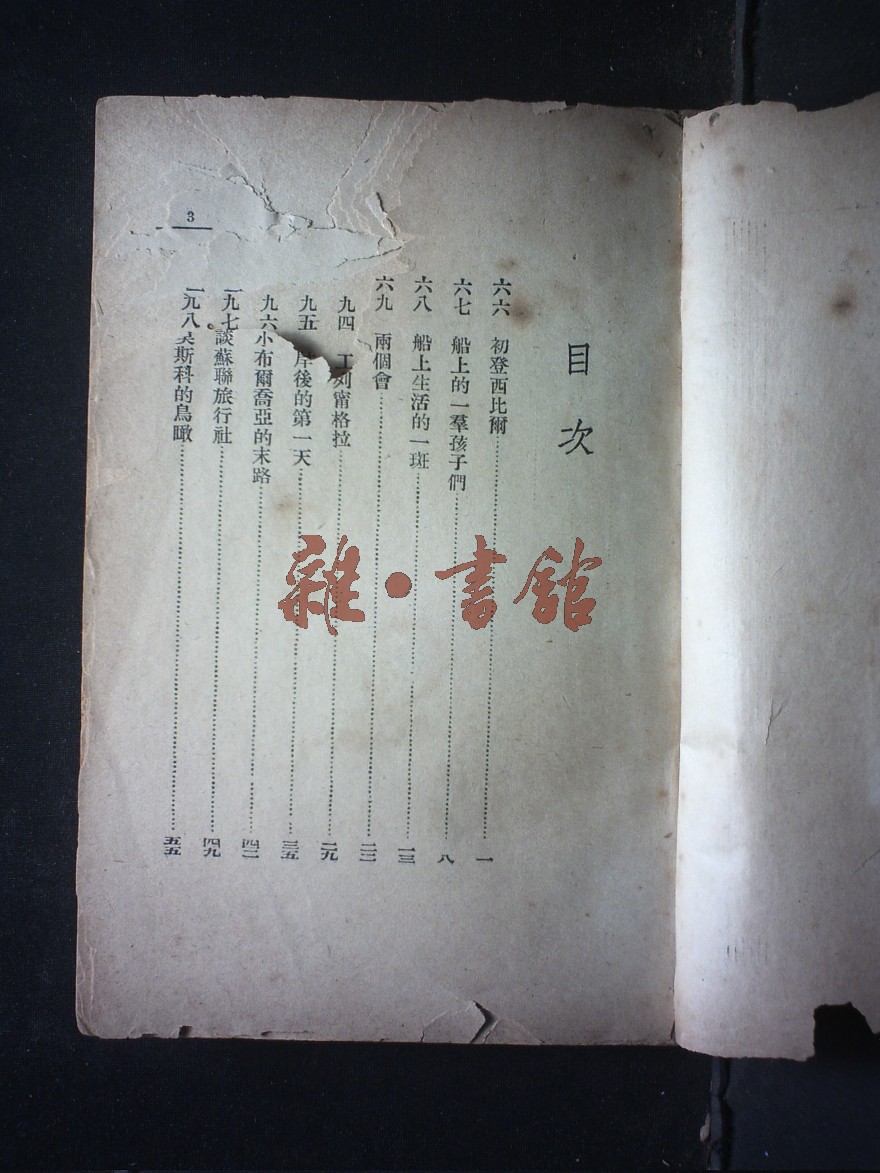 目次
六六 初登西比爾……一
六七 船上的一羣孩子們……八
六八 船上生活的一斑……一三
六九 兩個會……二三
九四 列甯格拉……二九
九五 岸後的第一天……三五
九六 小布爾喬亞的末路……四二
一九七 談蘇聯旅行社……四九
一九八 莫斯科的鳥瞰……五五
3
雜•書館